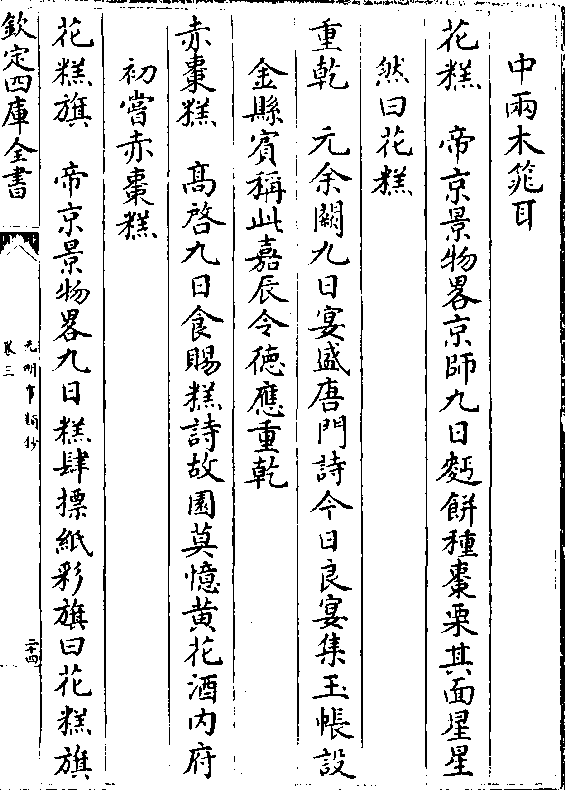 中兩木篦耳
花糕　帝京景物畧京師九日麪餅種棗栗其面星星
然曰花糕
重乾　元余闕九日宴盛唐門詩今日良宴集玉帳設
金縣賓稱此嘉辰令德應重乾
赤棗糕　髙啓九日食賜糕詩故園莫憶黄花酒内府
初嘗赤棗糕
花糕旗　帝京景物畧九日糕肆摽紙彩旗曰花糕旗
欽定四庫全書
元明事類鈔
卷三
二十四